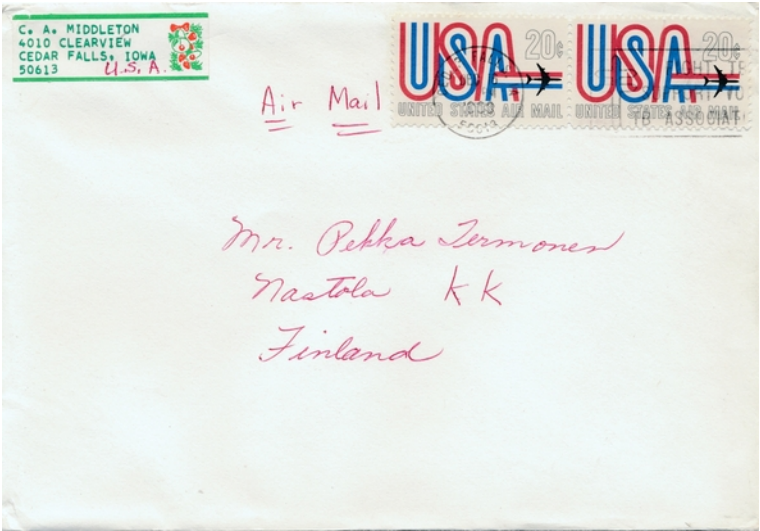 C. A. MIDDLETON
4010 CLEARVIEW
CEDAR FALLS, IOWA
50613 U.S.A.
Air Mail
USA 20¢
UNITED STATES AIR MAIL
USA 20¢
UNITED STATES AIR MAIL
TB ASSOCIAT
Mr. Pekka Termonen
Nastola KK
Finland